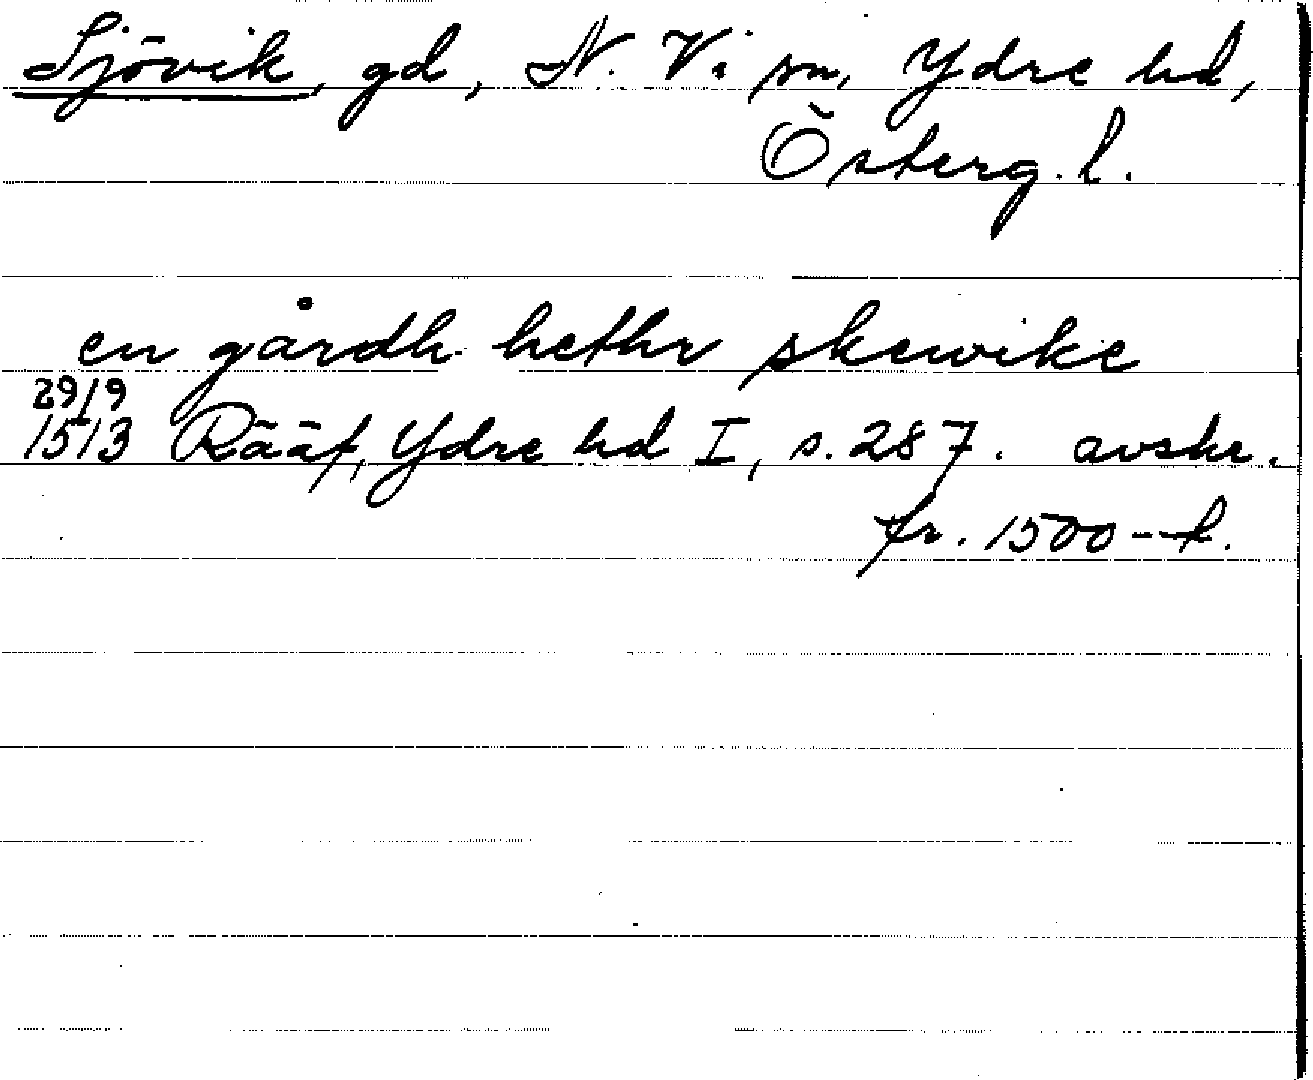 Sjövik, gd, N. Vi sn, Ydre hd,
Österg. l.
en gårdh hethr skewike
29/9
1513 Rääf, Ydre hd I, s. 287. avskr.
fr. 1500-t.